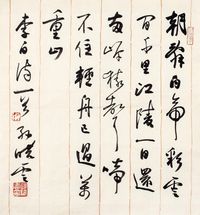 朝辭白帝彩雲
間千里江陵一日還
兩岸猿聲啼
不住輕舟已過萬
重山
李白詩一首 孫曉雲